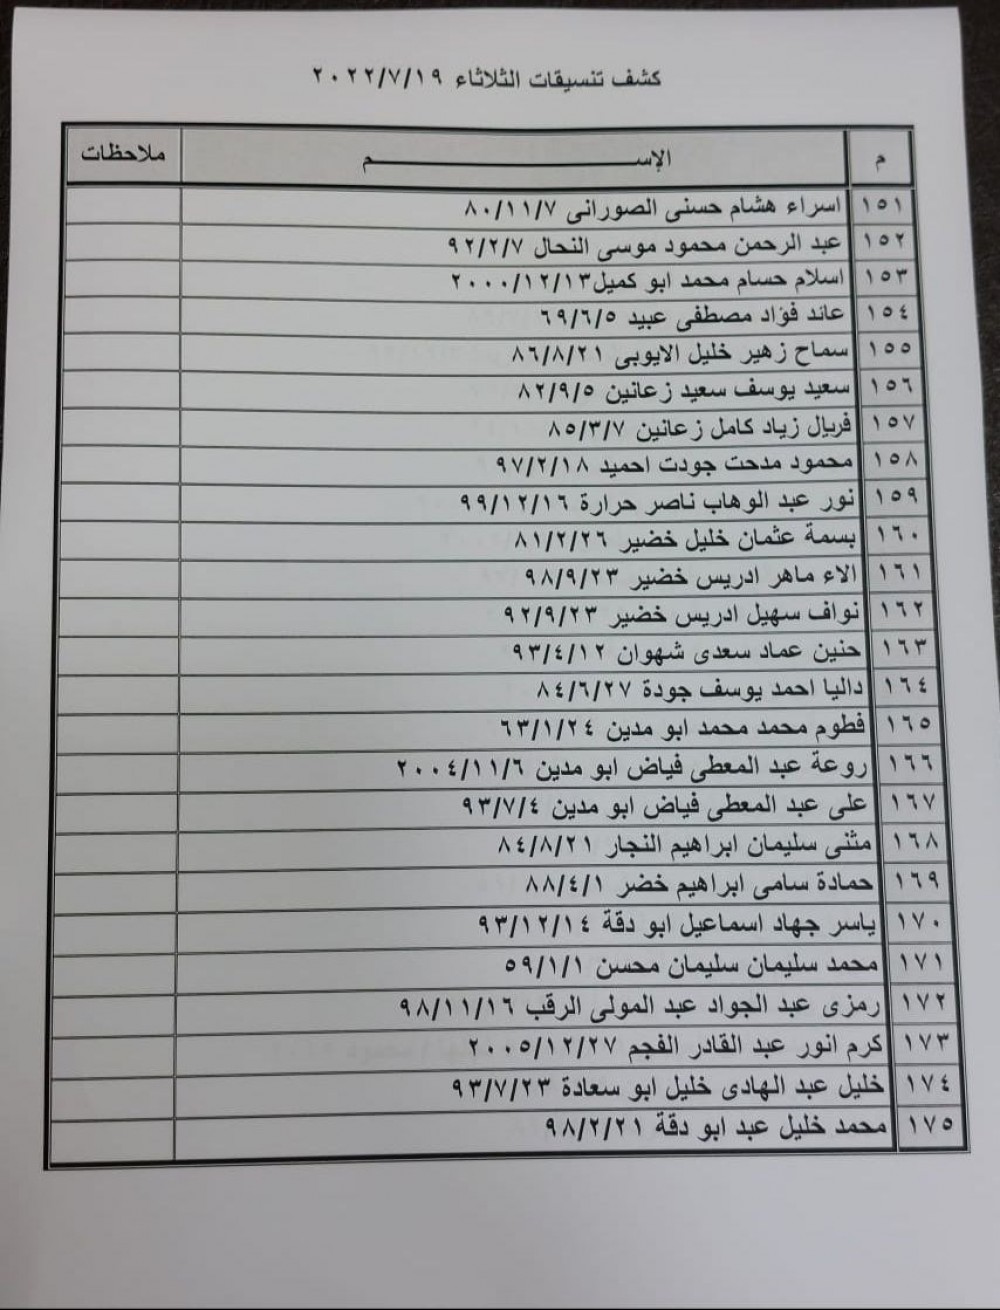 كشف تنسيقات الثلاثاء ٢٠٢٢/٧/١٩
م الإســـــم ملاحظات
١٥١ اسراء هشام حسنى الصورانى ٨٠/١١/٧
١٥٢ عبد الرحمن محمود موسى النحال ٩٢/٢/٧
١٥٣ اسلام حسام محمد ابو كميل٢٠٠٠/١٢/١٣
١٥٤ عائد فؤاد مصطفى عبيد ٦٩/٦/٥
١٥٥ سماح زهير خليل الايوبى ٨٦/٨/٢١
١٥٦ سعيد يوسف سعيد زعانين ٨٢/٩/٥
١٥٧ فريال زياد كامل زعانين ٨٥/٣/٧
١٥٨ محمود مدحت جودت احميد ٩٧/٢/١٨
١٥٩ نور عبد الوهاب ناصر حرارة ٩٩/١٢/١٦
١٦٠ بسمة عثمان خليل خضير ٨١/٢/٢٦
١٦١ الاء ماهر ادريس خضير ٩٨/٩/٢٣
١٦٢ نواف سهيل ادريس خضير ٩٢/٩/٢٣
١٦٣ حنين عماد سعدى شهوان ٩٣/٤/١٢
١٦٤ داليا احمد يوسف جودة ٨٤/٦/٢٧
١٦٥ فطوم محمد محمد ابو مدين ٦٣/١/٢٤
١٦٦ روعة عبد المعطى فياض ابو مدين ٢٠٠٤/١١/٦
١٦٧ على عبد المعطى فياض ابو مدين ٩٣/٧/٤
١٦٨ مثنى سليمان ابراهيم النجار ٨٤/٨/٢١
١٦٩ حمادة سامى ابراهيم خضر ٨٨/٤/١
١٧٠ ياسر جهاد اسماعيل ابو دقة ٩٣/١٢/١٤
١٧١ محمد سليمان سليمان محسن ٥٩/١/١
١٧٢ رمزى عبد الجواد عبد المولى الرقب ٩٨/١١/١٦
١٧٣ كرم انور عبد القادر الفجم ٢٠٠٥/١٢/٢٧
١٧٤ خليل عبد الهادى خليل ابو سعادة ٩٣/٧/٢٣
١٧٥ محمد خليل عبد ابو دقة ٩٨/٢/٢١